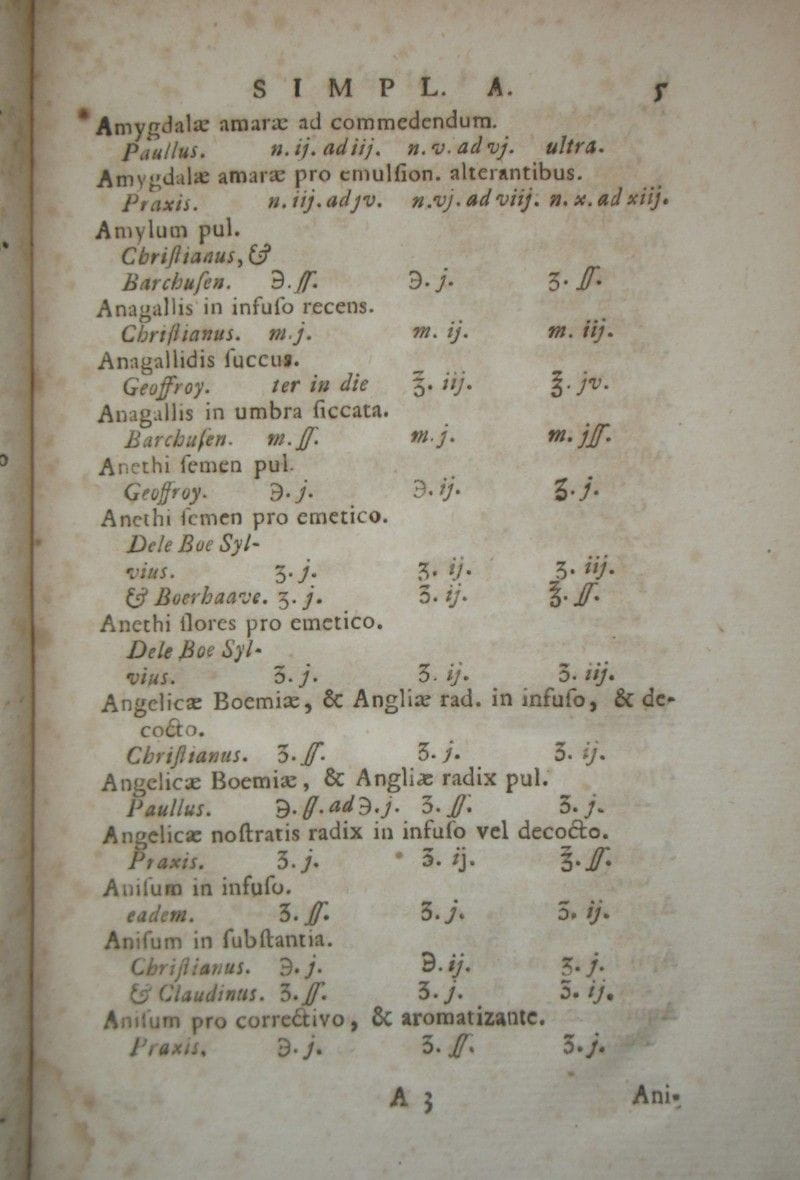 SIMPL. A. 5
* Amygdalæ amaræ ad commedendum.
Paullus. n. ij. ad iij. n. v. ad vj. ultra.
Amygdalæ amaræ pro emulſion. alterantibus.
Praxis. n. iij. ad jv. n. vj. ad viij. n. x. ad xiij.
Amylum pul.
Chriſtianus, &
Barchuſen. ℈. ſſ. ℈. j. ʒ. ſſ.
Anagallis in infuſo recens.
Chriſtianus. m. j. m. ij. m. iij.
Anagallidis ſuccus.
Geoffroy. ter in die ℥. iij. ℥. jv.
Anagallis in umbra ſiccata.
Barchuſen. m. ſſ. m. j. m. jſſ.
Anethi ſemen pul.
Geoffroy. ℈. j. ℈. ij. ʒ. j.
Anethi ſemen pro emetico.
Dele Boe Syl-
vius. ʒ. j. ʒ. ij. ʒ. iij.
& Boerhaave. ʒ. j. ʒ. ij. ℥. ſſ.
Anethi flores pro emetico.
Dele Boe Syl-
vius. ʒ. j. ʒ. ij. ʒ. iij.
Angelicæ Boemiæ, & Angliæ rad. in infuſo, & de-
cocto.
Chriſtianus. ʒ. ſſ. ʒ. j. ʒ. ij.
Angelicæ Boemiæ, & Angliæ radix pul.
Paullus. ℈. ſſ. ad ℈. j. ʒ. ſſ. ʒ. j.
Angelicæ noſtratis radix in infuſo vel decocto.
Praxis. ʒ. j. ʒ. ij. ℥. ſſ.
Aniſum in infuſo.
eadem. ʒ. ſſ. ʒ. j. ʒ. ij.
Aniſum in ſubſtantia.
Chriſtianus. ℈. j. ℈. ij. ʒ. j.
& Claudinus. ʒ. ſſ. ʒ. j. ʒ. ij.
Aniſum pro correctivo, & aromatizante.
Praxis. ℈. j. ʒ. ſſ. ʒ. j.
A 3 Ani-